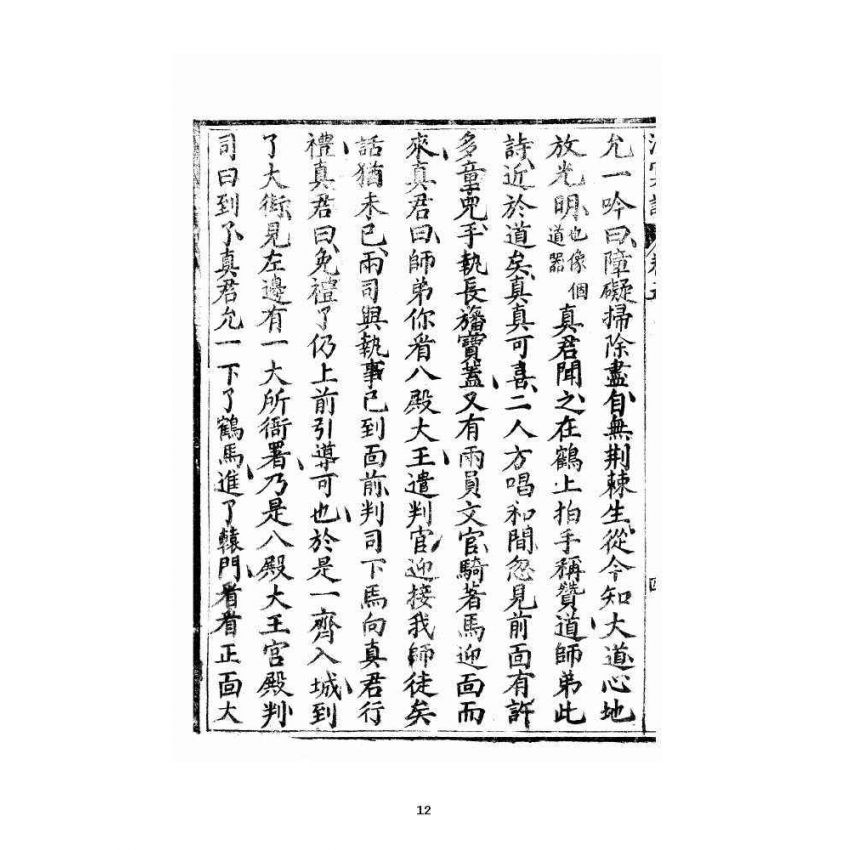 允一吟曰障礙掃除盡自無荆棘生從今知大道心地
放光明也像個道器真君聞之在鶴上拍手稱贊道師弟此
詩近於道矣真真可喜二人方唱和間忽見前面有許
多童兒手執長旛寶蓋又有兩員文官騎着馬迎面而
來真君曰師弟你看八殿大王遣判官迎接我師徒矣
話猶未已兩司與執事已到面前判司下馬向真君行
禮真君曰免禮了仍上前引導可也於是一齊入城到
了大街見左邊有一大所衙署乃是八殿大王宮殿判
司曰到了真君允一下了鶴馬進了轅門看看正面大
12